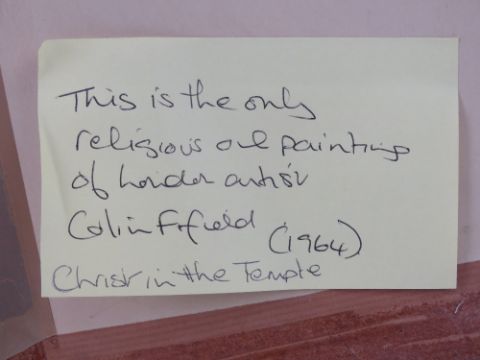 This is the only
religious oil paintings
of London artist
Colin Fifield (1964)
Christ in the Temple